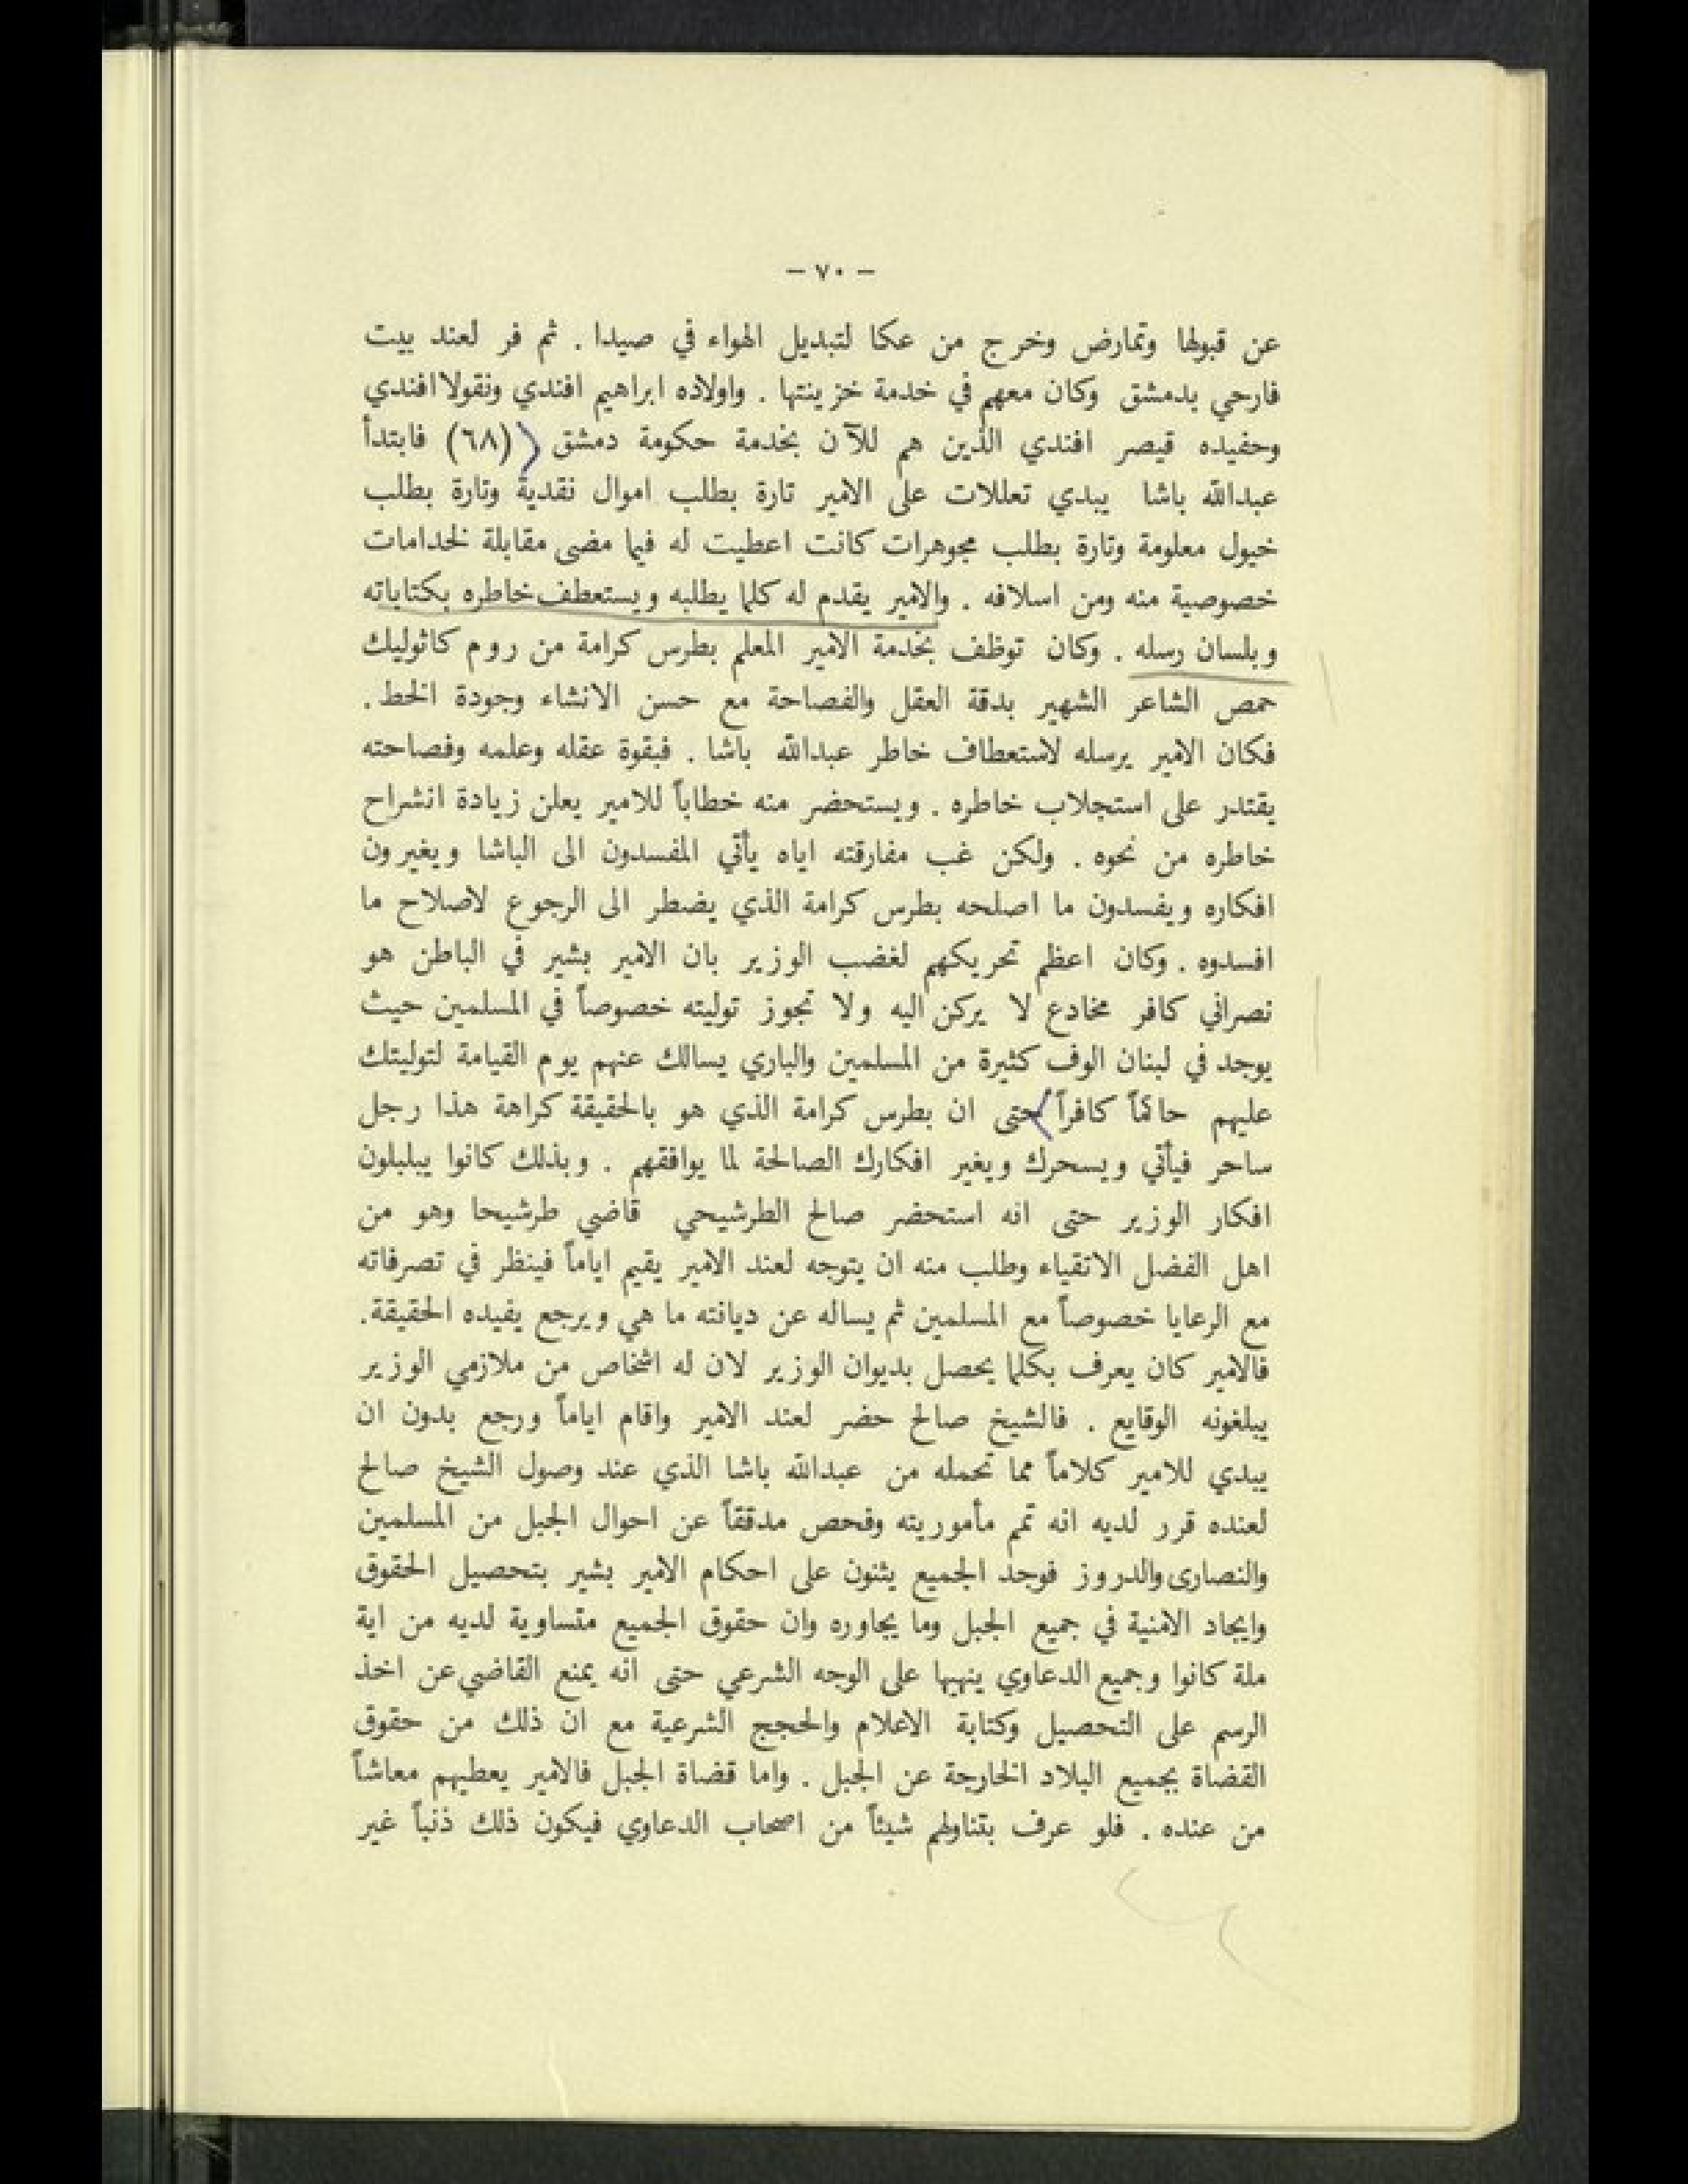 - ٧٠ -
عن قبولها وتمارض وخرج من عكا لتبديل الهواء في صيدا . ثم فر لعند بيت
فارحي بدمشق وكان معهم في خدمة خزينتها . واولاده ابراهيم افندي ونقولا افندي
وحفيده قيصر افندي الذين هم للآن بخدمة حكومة دمشق (٦٨) فابتدأ
عبدالله باشا يبدي تعللات على الامير تارة بطلب اموال نقدية وتارة بطلب
خيول معلومة وتارة بطلب مجوهرات كانت اعطيت له فيما مضى مقابلة لخدامات
خصوصية منه ومن اسلافه . والامير يقدم له كلما يطلبه ويستعطف خاطره بكتاباته
وبلسان رسله . وكان توظف بخدمة الامير المعلم بطرس كرامة من روم كاثوليك
حمص الشاعر الشهير بدقة العقل والفصاحة مع حسن الانشاء وجودة الخط .
فكان الامير يرسله لاستعطاف خاطر عبدالله باشا . فبقوة عقله وعلمه وفصاحته
يقتدر على استجلاب خاطره . ويستحضر منه خطاباً للامير يعلن زيادة انشراح
خاطره من نحوه . ولكن غب مفارقته اياه يأتي المفسدون الى الباشا ويغيرون
افكاره ويفسدون ما اصلحه بطرس كرامة الذي يضطر الى الرجوع لاصلاح ما
افسدوه . وكان اعظم تحريكهم لغضب الوزير بان الامير بشير في الباطن هو
نصراني كافر مخادع لا يركن اليه ولا تجوز توليته خصوصاً في المسلمين حيث
يوجد في لبنان الوف كثيرة من المسلمين والباري يسالك عنهم يوم القيامة لتوليتك
عليهم حاكماً كافراً حتى ان بطرس كرامة الذي هو بالحقيقة كراهة هذا رجل
ساحر فيأتي ويسحرك ويغير افكارك الصالحة لما يوافقهم . وبذلك كانوا يبلبلون
افكار الوزير حتى انه استحضر صالح الطرشيحي قاضي طرشيحا وهو من
اهل الفضل الاتقياء وطلب منه ان يتوجه لعند الامير يقيم اياماً فينظر في تصرفاته
مع الرعايا خصوصاً مع المسلمين ثم يساله عن ديانته ما هي ويرجع يفيده الحقيقة .
فالامير كان يعرف بكلما يحصل بديوان الوزير لان له اشخاص من ملازمي الوزير
يبلغونه الوقايع . فالشيخ صالح حضر لعند الامير واقام اياماً ورجع بدون ان
يبدي للامير كلاماً مما تحمله من عبدالله باشا الذي عند وصول الشيخ صالح
لعنده قرر لديه انه تمم مأموريته وفحص مدققاً عن احوال الجبل من المسلمين
والنصارى والدروز فوجد الجميع يثنون على احكام الامير بشير بتحصيل الحقوق
وايجاد الامنية في جميع الجبل وما يجاوره وان حقوق الجميع متساوية لديه من اية
ملة كانوا وجميع الدعاوي ينهيها على الوجه الشرعي حتى انه يمنع القاضي عن اخذ
الرسم على التحصيل وكتابة الاعلام والحجج الشرعية مع ان ذلك من حقوق
القضاة بجميع البلاد الخارجة عن الجبل . واما قضاة الجبل فالامير يعطيهم معاشاً
من عنده . فلو عرف بتناولهم شيئاً من اصحاب الدعاوي فيكون ذلك ذنباً غير